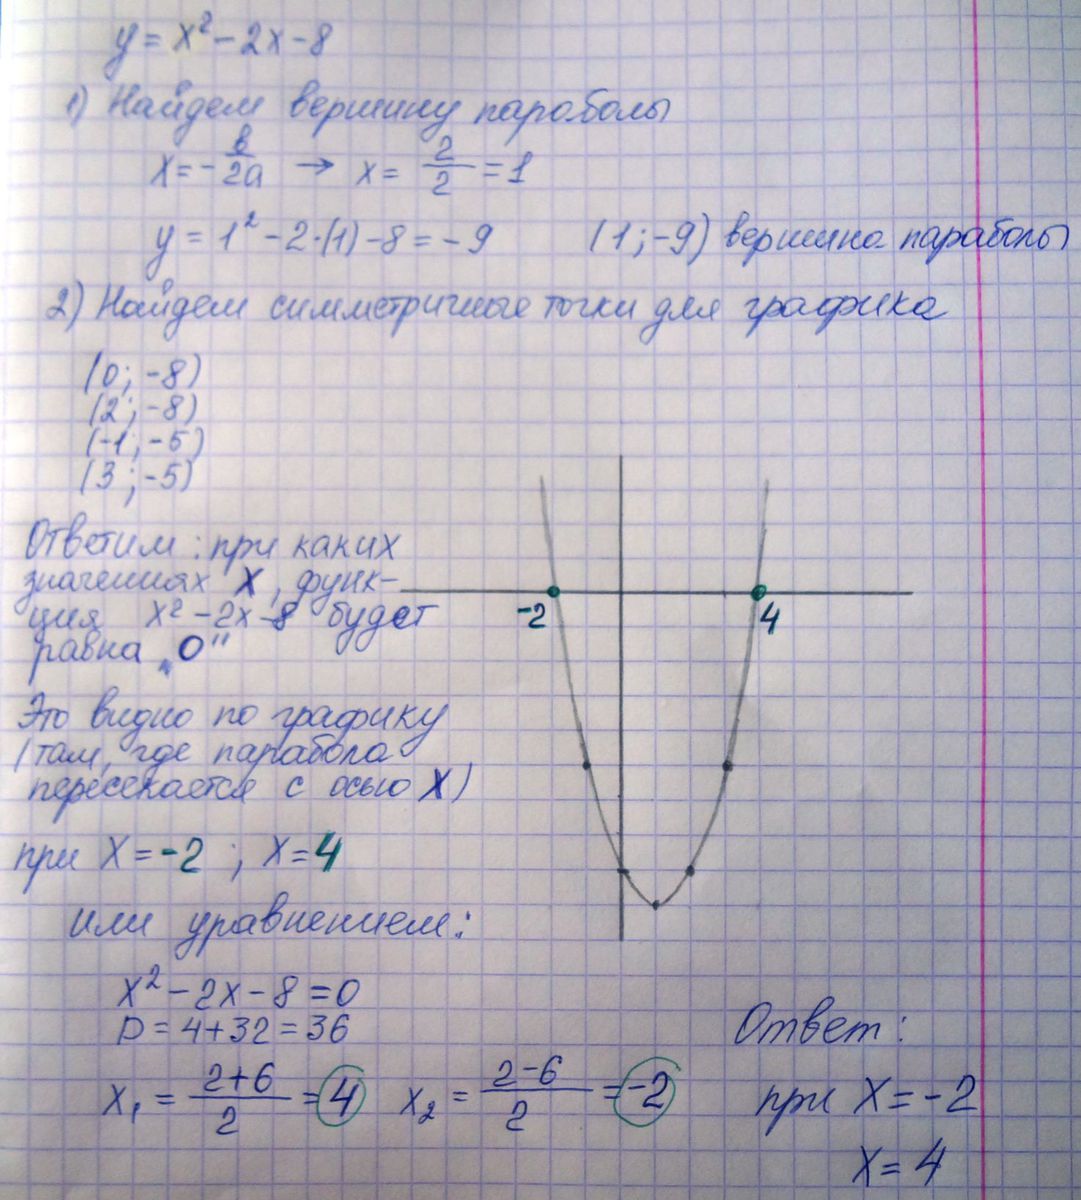 y = x² - 2x - 8
1) Найдем вершину параболы
x = - в/2a → x = 2/2 = 1
y = 1² - 2·(1) - 8 = -9 (1; -9) вершина параболы
2) Найдем симметричные точки для графика
(0; -8)
(2; -8)
(-1; -5)
(3; -5)
Ответим: при каких
значениях X, функ-
ция x² - 2x - 8 будет
равна „0"
Это видно по графику
(там, где парабола
пересекается с осью X)
при X = -2 ; X = 4
-2 4
или уравнением:
x² - 2x - 8 = 0
D = 4 + 32 = 36
x₁ = (2+6)/2 = 4 x₂ = (2-6)/2 = -2
Ответ:
при X = -2
X = 4